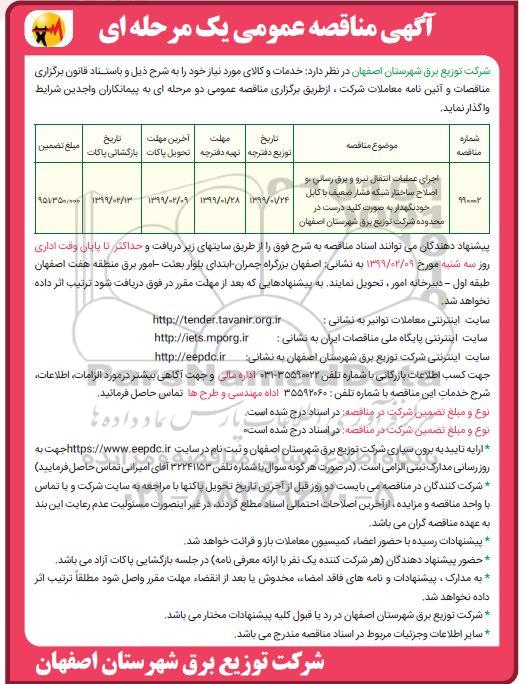 آگهی مناقصه عمومی یک مرحله ای
شرکت توزیع برق شهرستان اصفهان در نظر دارد: خدمات و کالای مورد نیاز خود را به شرح ذیل و باستناد قانون برگزاری
مناقصات و آئین نامه معاملات شرکت ، ازطریق برگزاری مناقصه عمومی دو مرحله ای به پیمانکاران واجدین شرایط
واگذار نماید.
شماره مناقصه
موضوع مناقصه
تاریخ توزیع دفترچه
مهلت تهیه دفترچه
آخرین مهلت تحویل پاکات
تاریخ بازگشائی پاکات
مبلغ تضمین
۹۹۰۰۰۲
اجرای عملیات انتقال نیرو و برق رسانی ،و
اصلاح ساختار شبکه فشار ضعیف با کابل
خودنگهدار به صورت کلید درست در
محدوده شرکت توزیع برق شهرستان اصفهان
۱۳۹۹/۰۱/۲۴
۱۳۹۹/۰۱/۲۸
۱۳۹۹/۰۲/۰۹
۱۳۹۹/۰۲/۱۳
۹۵۱/۳۵۰/۰۰۰
پیشنهاد دهندگان می توانند اسناد مناقصه به شرح فوق را از طریق سایتهای زیر دریافت و حداکثر تا پایان وقت اداری
روز سه شنبه مورخ ۱۳۹۹/۰۲/۰۹ به نشانی: اصفهان بزرگراه چمران-ابتدای بلوار بعثت -امور برق منطقه هفت اصفهان
طبقه اول – دبیرخانه امور ، تحویل نمایند. به پیشنهادهایی که بعد از مهلت مقرر در فوق دریافت شود ترتیب اثر داده
نخواهد شد.
سایت اینترنتی معاملات توانیر به نشانی : http://tender.tavanir.org.ir
سایت اینترنتی پایگاه ملی مناقصات ایران به نشانی : http://iets.mporg.ir
سایت اینترنتی شرکت توزیع برق شهرستان اصفهان به نشانی: http://eepdc.ir
جهت کسب اطلاعات بازرگانی با شماره تلفن ۳۵۵۹۰۰۲۲-۰۳۱ اداره مالی و جهت آگاهی بیشتر درمورد الزامات، اطلاعات،
شرح خدمات این مناقصه با شماره تلفن : ۳۵۵۹۲۰۶۰ اداه مهندسی و طرح ها تماس حاصل فرمائید.
نوع و مبلغ تضمین شرکت در مناقصه: در اسناد درج شده است.
نوع و مبلغ تضمین شرکت در مناقصه: در اسناد درج شده است.
*ارایه تاییدیه برون سپاری شرکت توزیع برق شهرستان اصفهان و ثبت نام در سایت https://www.eepdc.ir جهت به
روز رسانی مدارک ثبتی الزامی است. (در صورت هر گونه سوال با شماره تلفن ۳۲۲۴۱۱۵۳ آقای امیرانی تماس حاصل فرمایید)
* شرکت کنندگان در مناقصه می بایست دو روز قبل از آخرین تاریخ تحویل پاکتها با مراجعه به سایت شرکت و یا تماس
با واحد مناقصه و مزایده ، ازآخرین اصلاحات احتمالی اسناد مطلع گردند، در غیر اینصورت مسئولیت عدم رعایت این بند
به عهده مناقصه گران می باشد.
* پیشنهادات رسیده با حضور اعضاء کمیسیون معاملات باز و قرائت خواهد شد.
* حضور پیشنهاد دهندگان (هر شرکت کننده یک نفر با ارائه معرفی نامه) در جلسه بازگشایی پاکات آزاد می باشد.
* به مدارک ، پیشنهادات و نامه های فاقد امضاء، مخدوش یا بعد از انقضاء مهلت مقرر واصل شود مطلقاً ترتیب اثر
داده نخواهد شد.
* شرکت توزیع برق شهرستان اصفهان در رد یا قبول کلیه پیشنهادات مختار می باشد.
* سایر اطلاعات وجزئیات مربوط در اسناد مناقصه مندرج می باشد.
شرکت توزیع برق شهرستان اصفهان